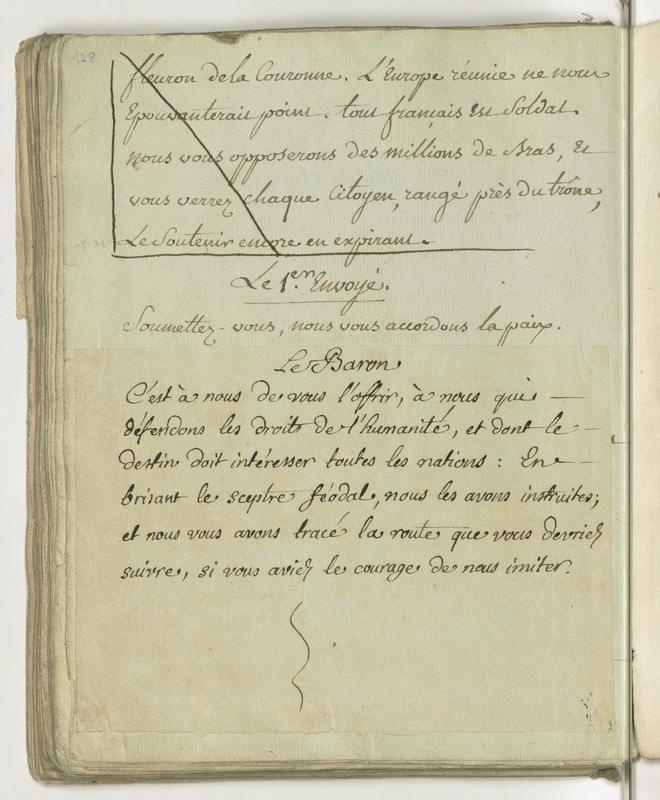 128
fleuron de la Couronne. L'Europe réunie ne nous
Epouvanterait point. tout français Est Soldat.
nous vous opposerons des millions de Bras, Et
vous verrez chaque Citoyen, rangé près du trône,
Le Soutenir encore en expirant.
Le 1.er Envoyé.
Soumettez-vous, nous vous accordons la paix.
Le Baron
C'est à nous de vous l'offrir, à nous qui —
défendons les droits de l'humanité, et dont le —
destin doit intéresser toutes les nations : En —
brisant le sceptre féodal, nous les avons instruites;
et nous vous avons tracé la route que vous devriez
suivre, si vous aviez le courage de nous imiter.